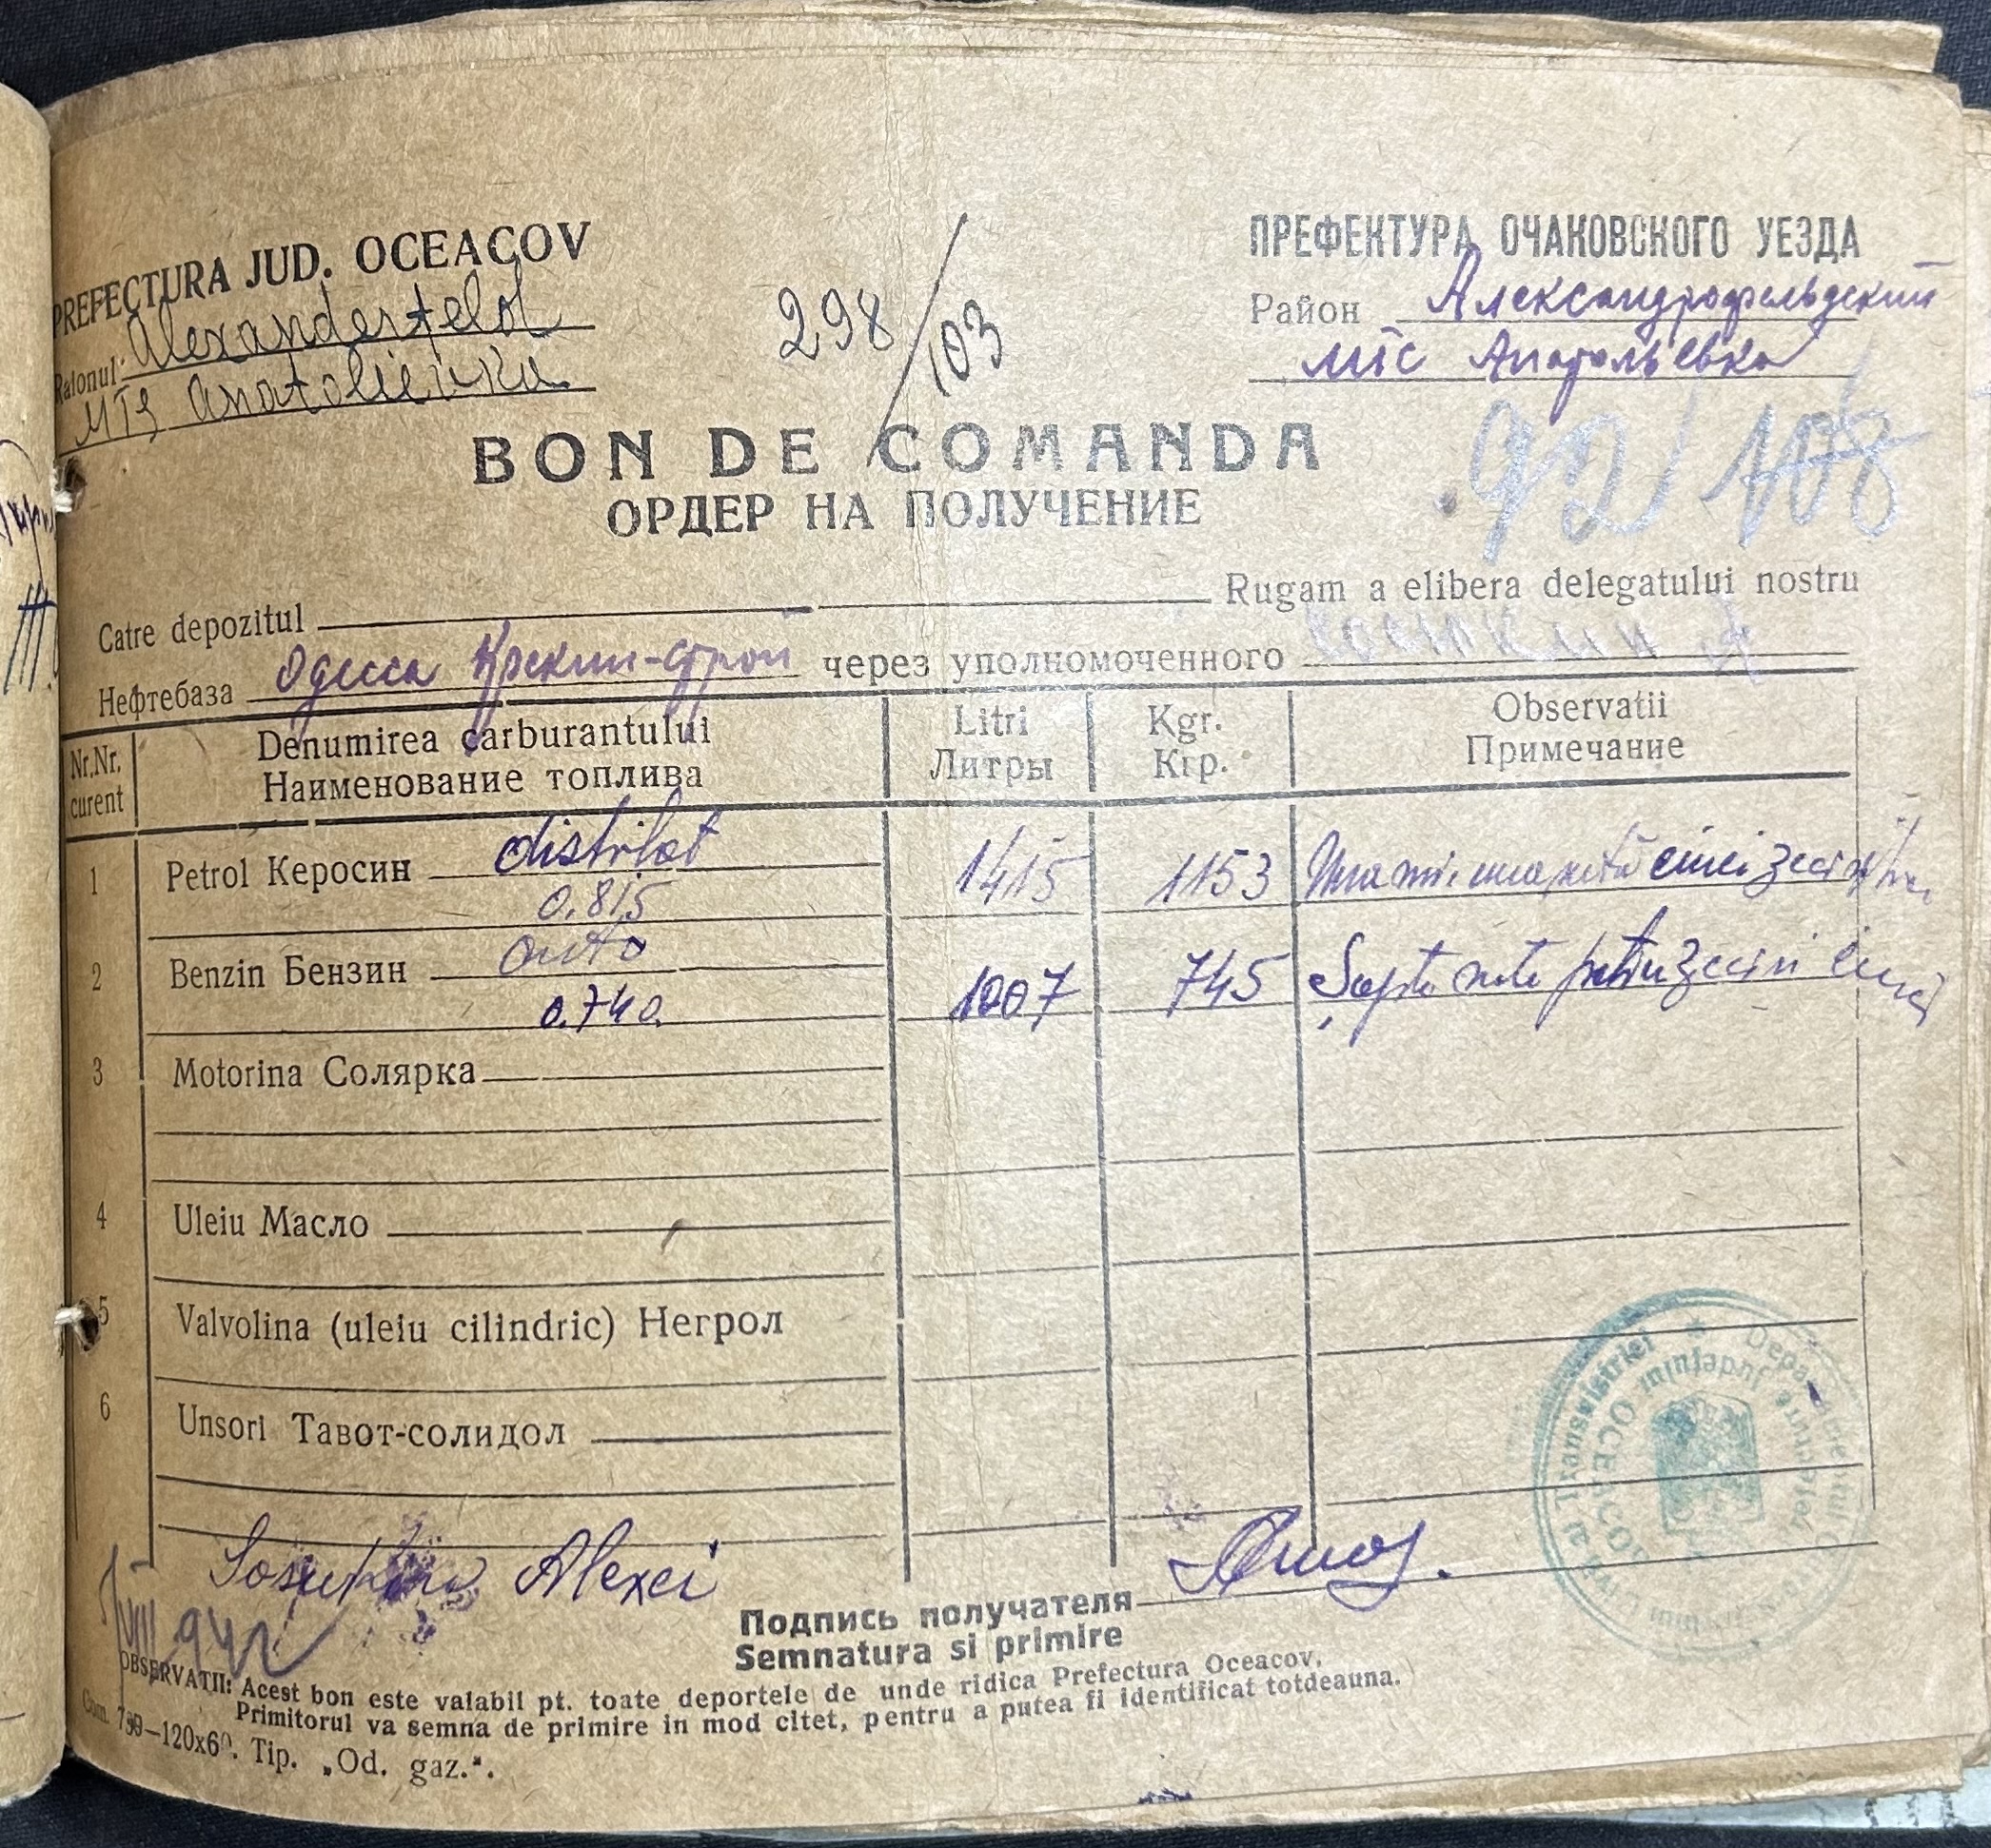 PREFECTURA JUD. OCEACOV
Raionul Alexanderfeld
MTS Anatolievka
298/103
ПРЕФЕКТУРА ОЧАКОВСКОГО УЕЗДА
Район Александрофельдский
мтс Анатольевка
92/108
BON DE COMANDA
ОРДЕР НА ПОЛУЧЕНИЕ
Catre depozitul Rugam a elibera delegatului nostru
Нефтебаза Одесса Крекин-строй через уполномоченного
Nr.Nr. curent
Denumirea carburantului
Наименование топлива
Litri
Литры
Kgr.
Кгр.
Observatii
Примечание
1 Petrol Керосин distilat 1415 1153 Una mie una sută cinci zeci și trei
0.815
2 Benzin Бензин auto
0.740 1007 745 Șapte sute patru zeci și cinci
3 Motorina Солярка
4 Uleiu Масло
5 Valvolina (uleiu cilindric) Негрол
6 Unsori Тавот-солидол
Departamentul
Guvernământul Transnistriei
Prefectura Județului
OCEACOV
Alexei
942
Подпись получателя
Semnatura si primire
OBSERVATII: Acest bon este valabil pt. toate deportele de unde ridica Prefectura Oceacov.
Primitorul va semna de primire in mod citet, pentru a putea fi identificat totdeauna.
Com. 739—120x60. Tip. „Od. gaz.".